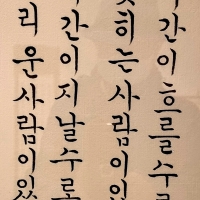 간이 흐를수
히는 사람이
간이 지날수
리운 사람이 있